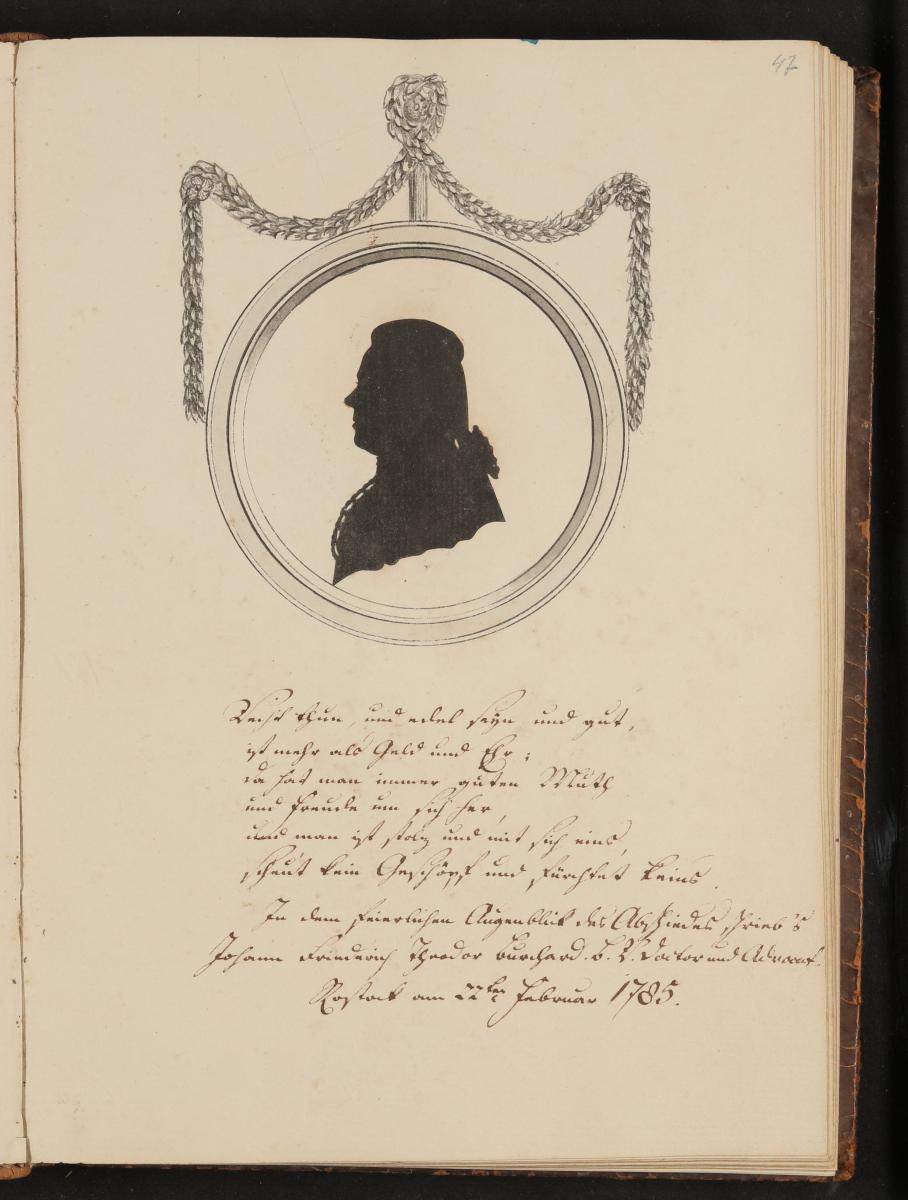 47
Recht thun, und edel seyn und gut,
ist mehr als Geld und Ehr;
da hat man immer guten Muth
und Freude um sich her,
und man ist stolz und mit sich eins,
scheut kein Geschöpf und fürchtet keins.
In dem feierlichen Augenblick des Abschiedes schrieb's
Johann Friederich Theodor Burchard. b. R. Doctor und Advocat.
Rostock am 22ten Februar 1785.